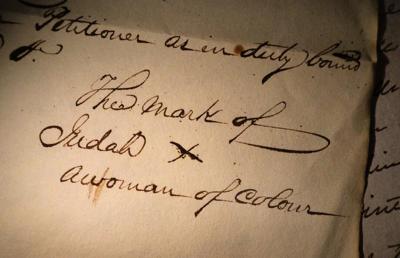 Petitioner as in duty bound
&.
The mark of
Judah x
a woman of Colour